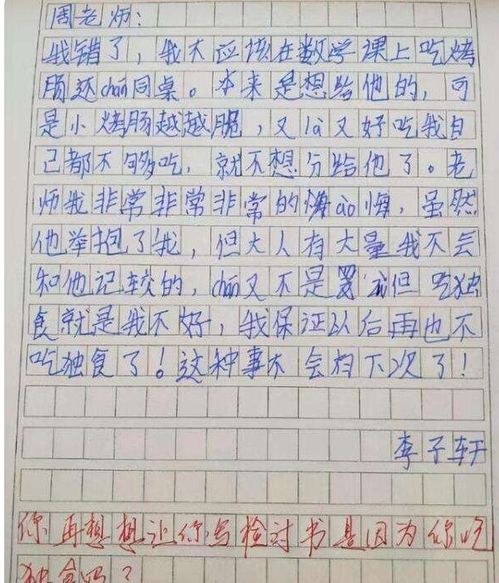 周老师:
我错了,我不应该在数学课上吃烤
肠还chán同桌。本来是想给他的,可
是小烤肠越越脆,又là又好吃我自
己都不够吃,就不想分给他了。老
师我非常非常非常的悔ào悔,虽然
他举抱了我,但大人有大量我不会
和他记较的,chán又不是罢 但吃独
食就是我不好,我保证以后再也不
吃独食了!这种事不会有下次了!
李子轩
你再想想让你写检讨书是因为你吃
独食吗?